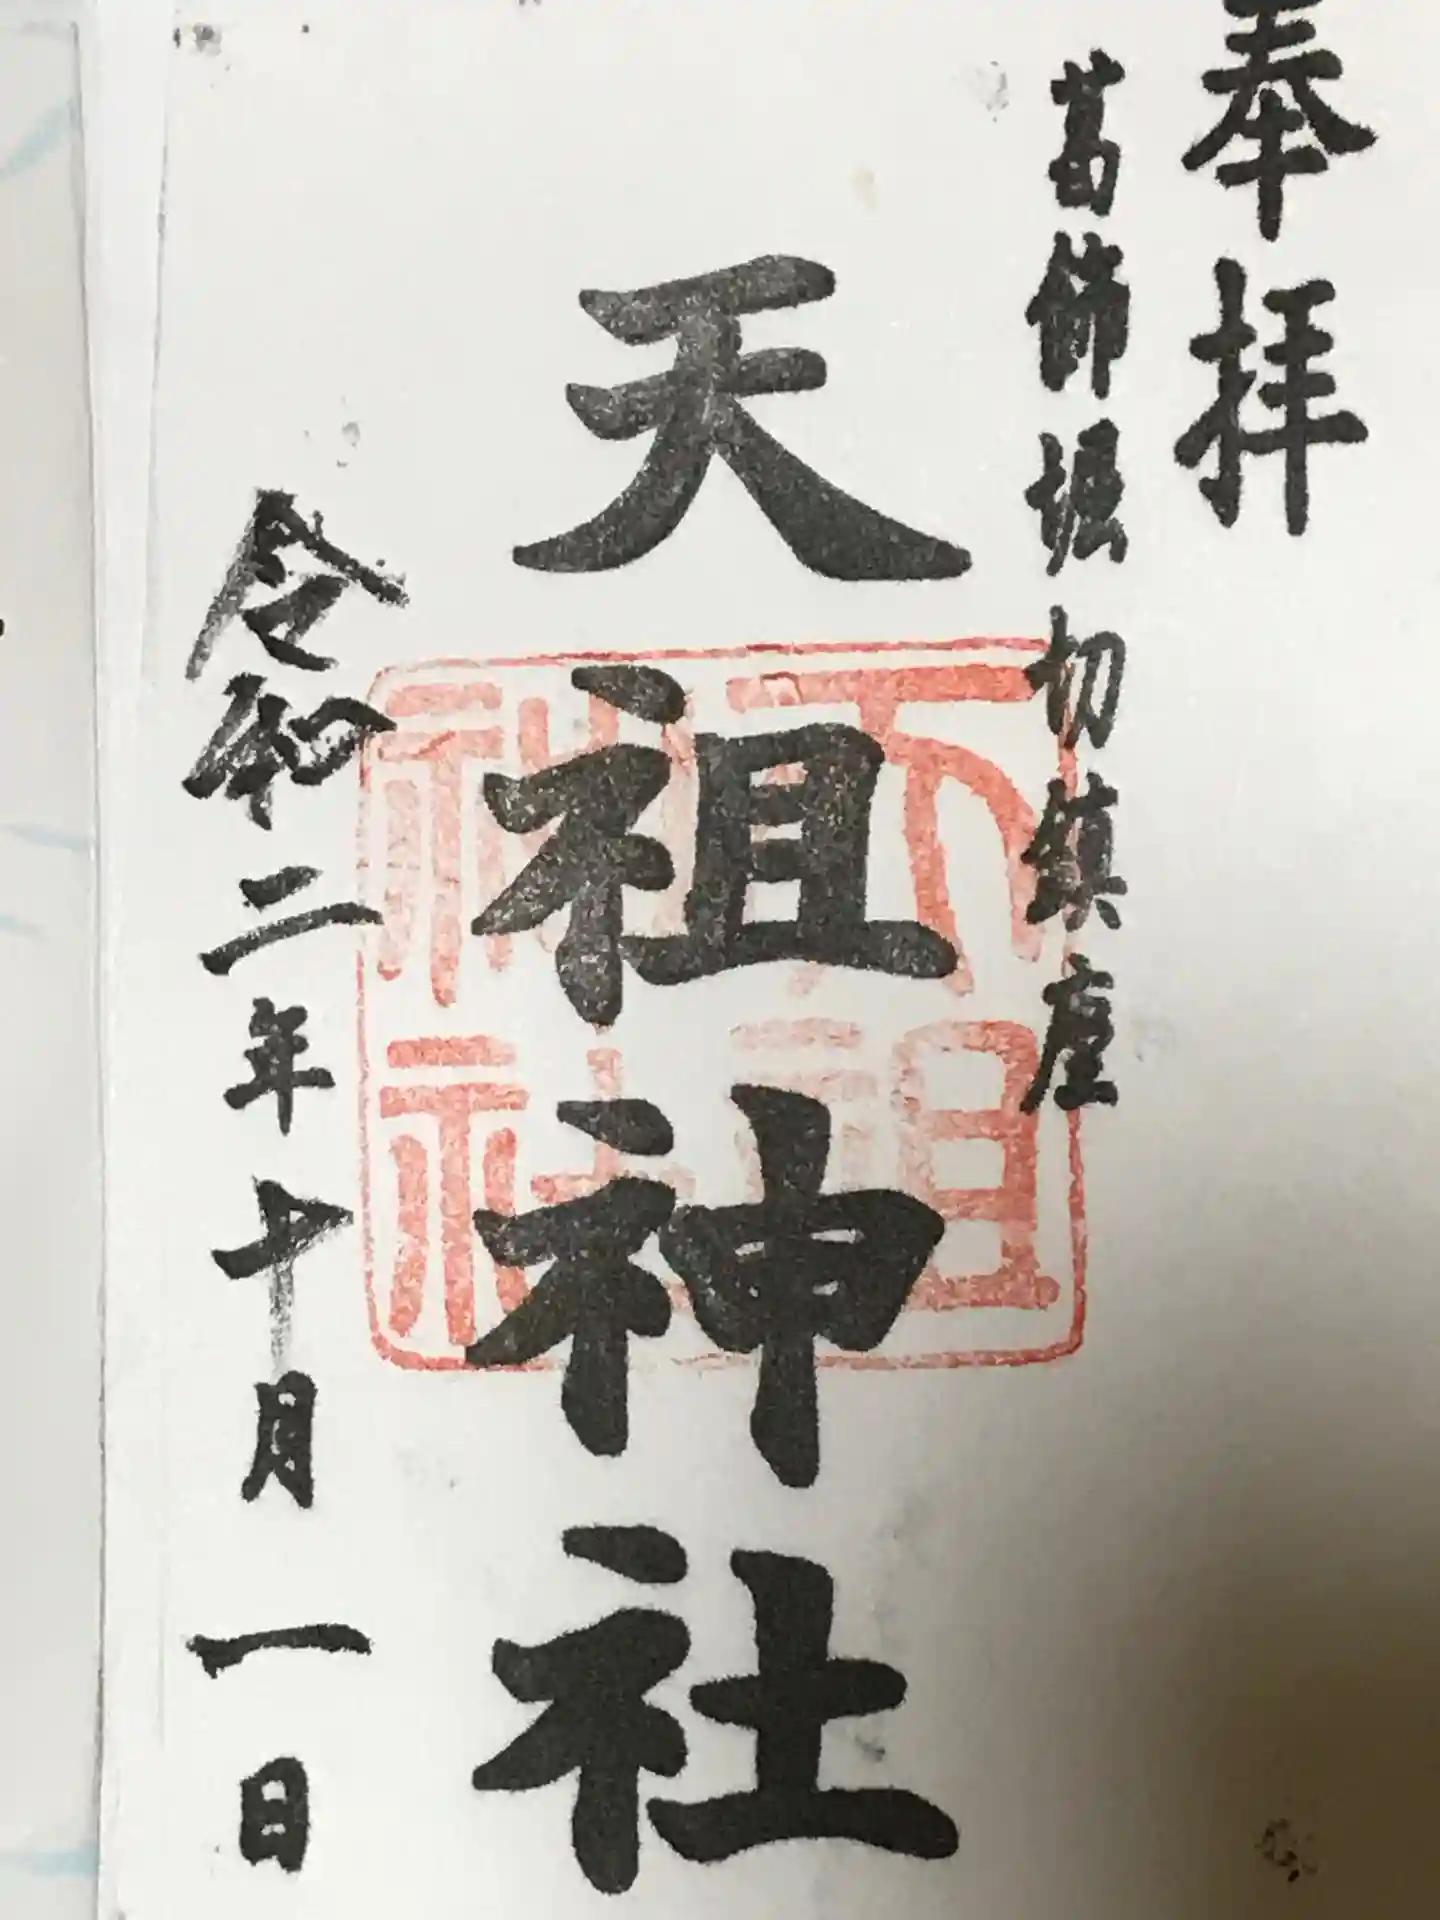 奉拝
葛飾堀切鎮座
天祖神社
天祖
神社
令和二年十月一日